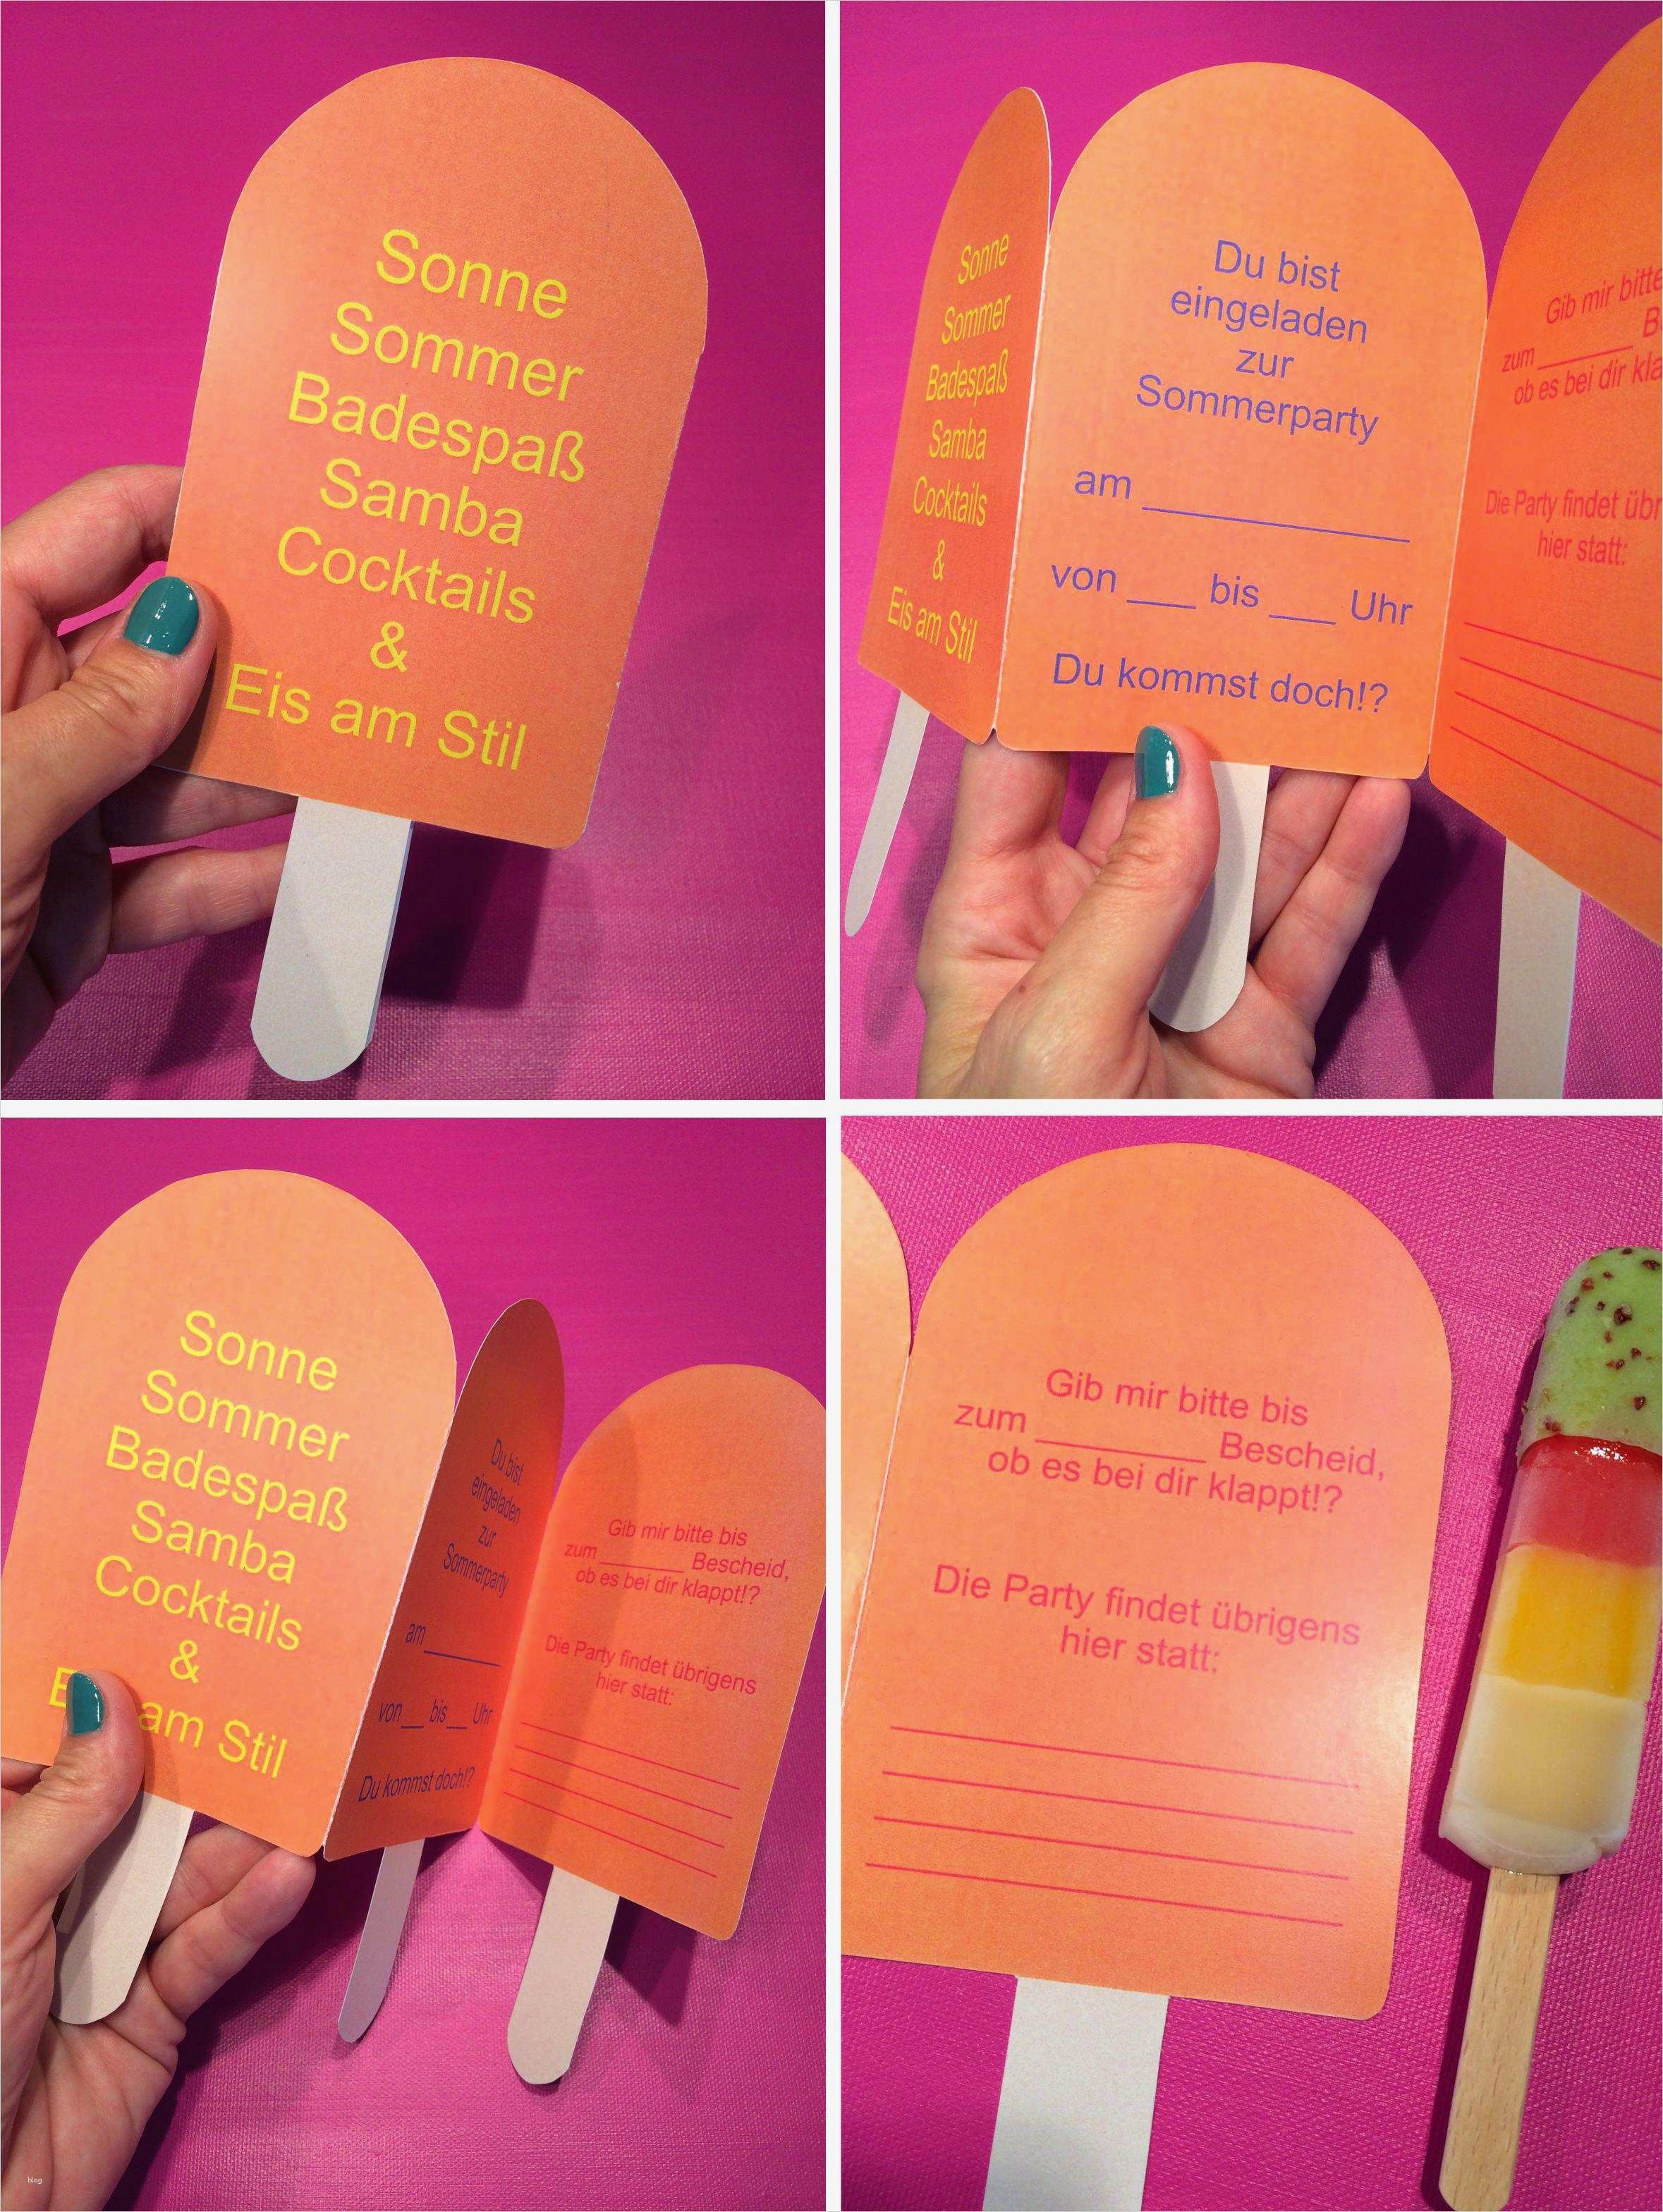 Sonne
Sommer
Badespaß
Samba
Cocktails
&
Eis am Stil
Sonne
Sommer
Badespaß
Samba
Cocktails
&
Eis am Stil
Du bist
eingeladen
zur
Sommerparty
am ____________
von ___ bis ___ Uhr
Du kommst doch!?
Gib mir bitte
zum ________
ob es bei dir
Die Party findet
hier statt:
Sonne
Sommer
Badespaß
Samba
Cocktails
&
am Stil
Du bist
eingeladen
zur
Sommerparty
am________
von___ bis___ Uhr
Du kommst doch!?
Gib mir bitte bis
zum ________ Bescheid,
ob es bei dir klappt!?
Die Party findet übrigens
hier statt:
Gib mir bitte bis
zum ________ Bescheid,
ob es bei dir klappt!?
Die Party findet übrigens
hier statt:
blog